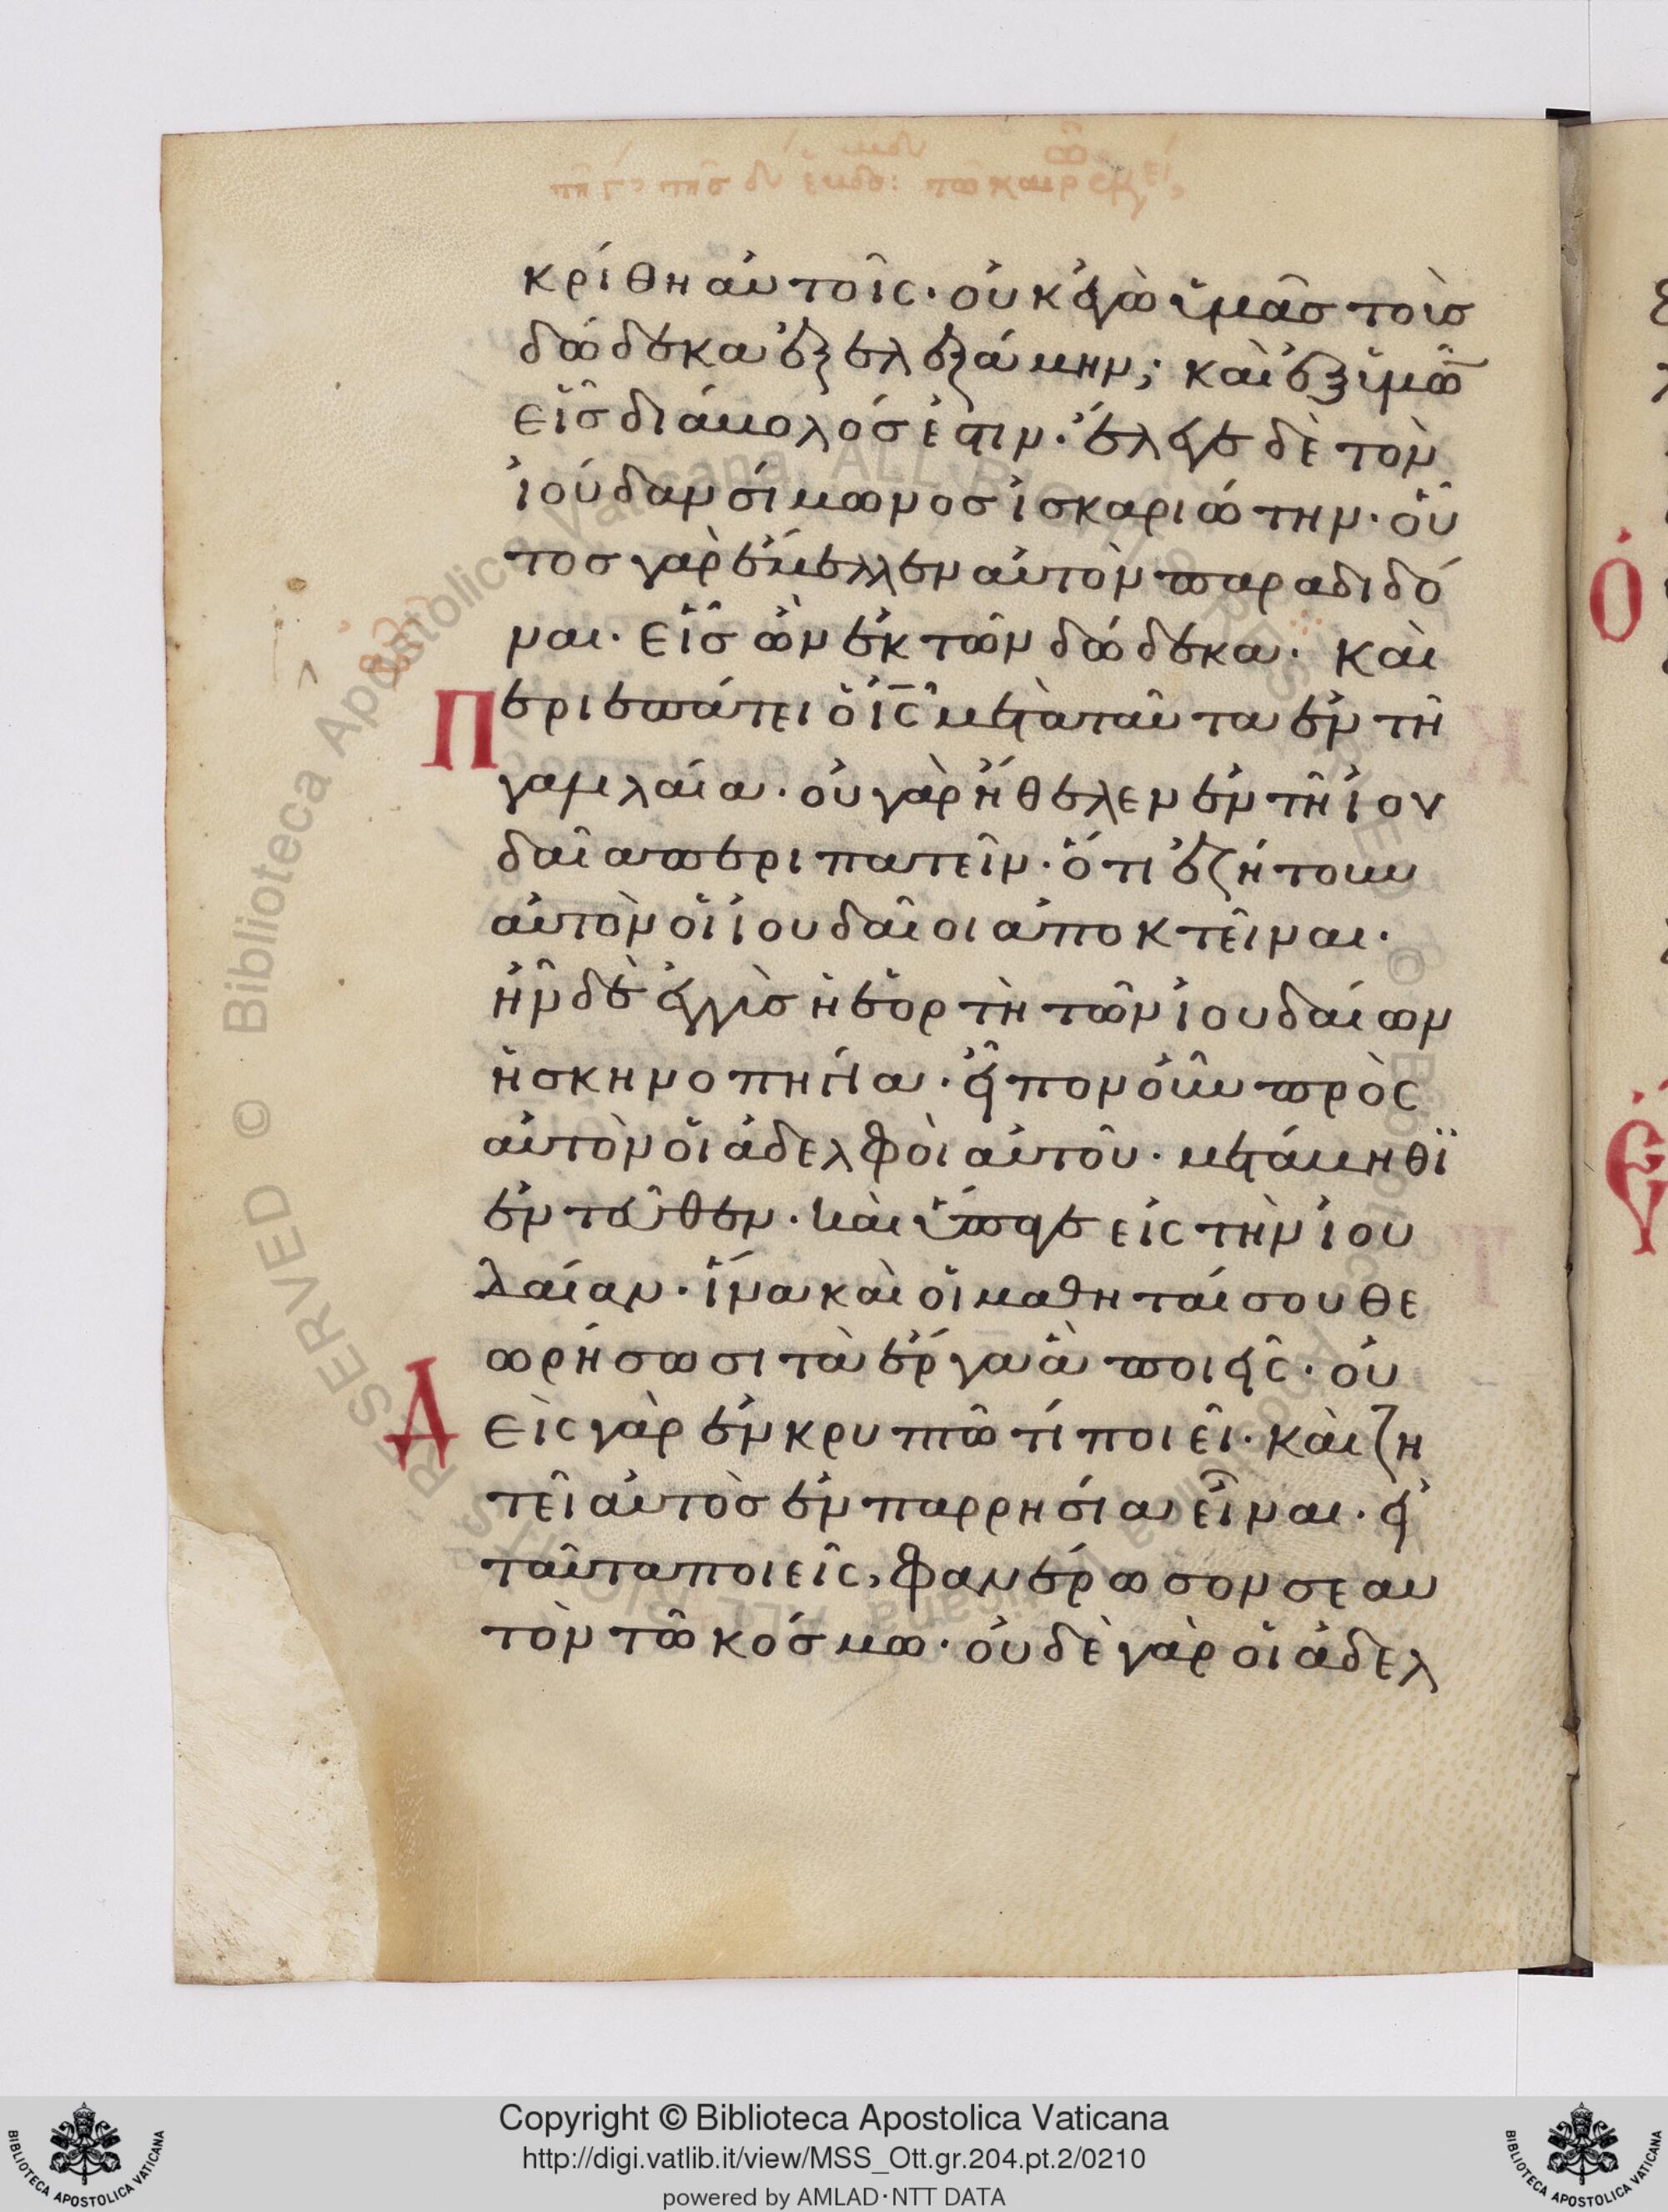 κρίθη αὐτοῖς· οὐκ ἐγὼ ὑμᾶσ τοὺσ
δώδεκα ἐξελεξάμην; καὶ ἐξ ὑμῶ̅
εἷσ διάβολόσ ἐστιν· ἔλεγε δὲ τὸν
ἰούδαν σίμωνοσ ἰσκαριώτην· οὗ
τοσ γὰρ ἔμελλεν αὐτὸν παραδιδό
ναι· εἷσ ὢν ἐκ τῶν δώδεκα· καὶ
Περιεπάτει ὁ ις̅ μετὰ ταῦτα ἐν τῆ
γαλιλαία· οὐ γὰρ ἤθελεν ἐν τῆ ἰου
δαία περιπατεῖν· ὅτι ἐζήτουν
αὐτὸν οἱ ἰουδαῖοι ἀποκτεῖναι·
ἦν δὲ ἐγγὺσ ἡ ἑορτὴ τῶν ἰουδαίων
ἡ σκηνοπηγία· εἶπον οὖν πρὸς
αὐτὸν οἱ ἀδελφοὶ αὐτοῦ· μετάβηθϊ
ἐντεῦθεν· καὶ ὕπαγε εἰς τὴν ἰου
δαίαν· ἵνα καὶ οἱ μαθηταί σου θε
ωρήσωσι τὰ ἔργα ἃ ποιεῖς· οὐ
Δεὶς γὰρ ἐν κρυπτῶ τί ποιεῖ· καὶ ζη
τεῖ αὐτὸσ ἐν παρρησία εἶναι· εἰ
ταῦτα ποιεῖς, φανέρωσον σεαυ
τὸν τῶ κόσμω· οὐδὲ γὰρ οἱ ἀδελ
Copyright © Biblioteca Apostolica Vaticana
http://digi.vatlib.it/view/MSS_Ott.gr.204.pt.2/0210
powered by AMLAD·NTT DATA
BIBLIOTECA APOSTOLICA VATICANA
BIBLIOTECA APOSTOLICA VATICANA